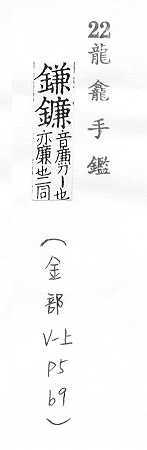 22龍龕手鑑
鎌鐮
音廉刀丨也
亦廉也二同
(金部V-上P5b9)